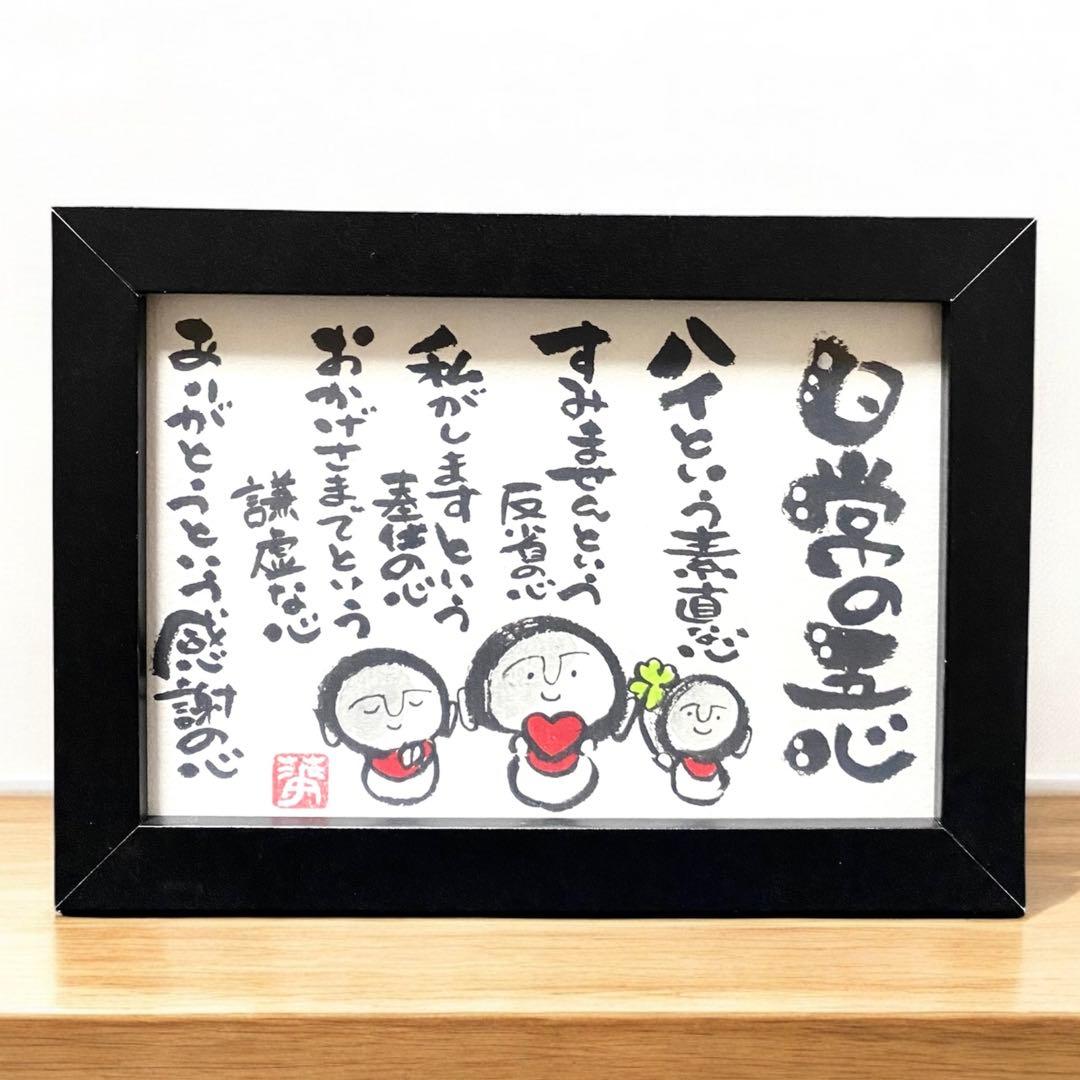 日常の五心
ハイという素直な心
すみませんという
反省の心
私がしますという
奉仕の心
おかげさまでという
謙虚な心
ありがとうという感謝の心